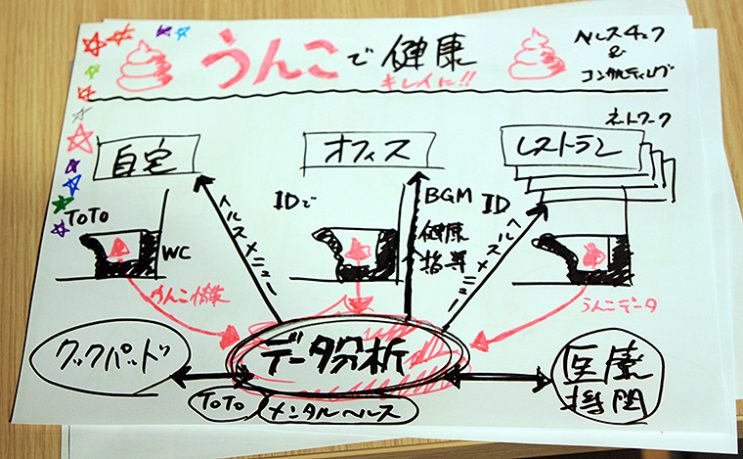 うんこで健康
キレイに!!
ヘルスチェック
&
コンサルティング
ネットワーク
自宅
オフィス
レストラン
TOTO
WC
IDで
BGM
健康
指導
ID
ヘルスメニュー
ヘルスメニュー
うんこ情報
うんこデータ
クックパッド
データ分析
医療
機関
TOTO
メンタルヘルス